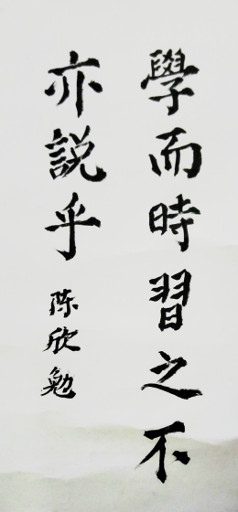 學而時習之不
亦説乎
陈欣勉